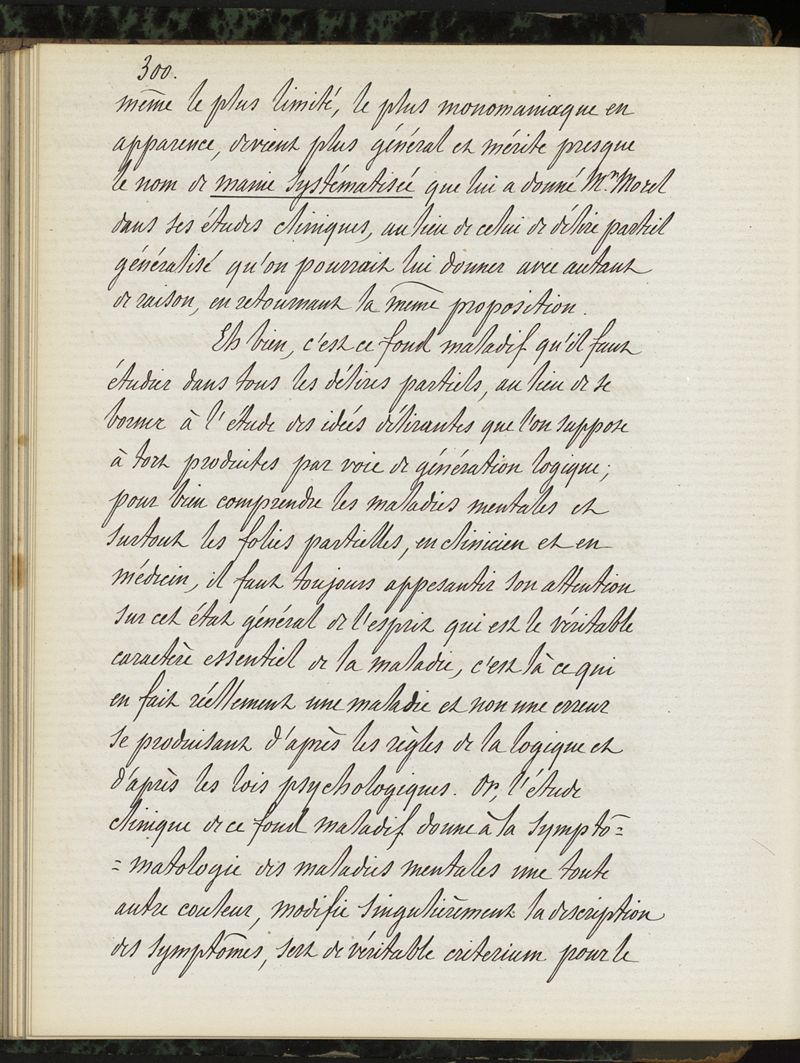 300.
même le plus limité, le plus monomaniaque en
apparence, devient plus général et mérite presque
le nom de manie systématisée que lui a donné Mr. Morel
dans ses études cliniques, au lieu de celui de délire partiel
généralisé qu'on pourrait lui donner avec autant
de raison, en retournant la même proposition.
Eh bien, c'est ce fond maladif qu'il faut
étudier dans tous les délires partiels, au lieu de se
borner à l'étude des idées délirantes que l'on suppose
à tort produites par voie de génération logique;
pour bien comprendre les maladies mentales et
surtout les folies partielles, en clinicien et en
médecin, il faut toujours appesantir son attention
sur cet état général de l'esprit qui est le véritable
caractère essentiel de la maladie, c'est là ce qui
en fait réellement une maladie et non une erreur
se produisant d'après les règles de la logique et
d'après les lois psychologiques. Or, l'étude
clinique de ce fond maladif donne à la sympto=
=matologie des maladies mentales une toute
autre couleur, modifie singulièrement la description
des symptômes, sert de véritable criterium pour le